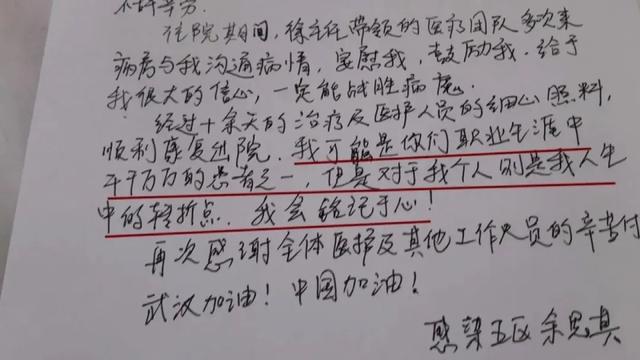 住院期间，徐主任带领的医疗团队多次来
病房与我沟通病情，安慰我，鼓励我．给予
我很大的信心，一定能战胜病魔．
经过十余天的治疗及医护人员的细心照料，
顺利康复出院．我可能是你们职业生涯中
千千万万的患者之一，但是对于我个人则是我人生
中的转折点．我会铭记于心！
再次感谢全体医护及其他工作人员的辛苦付
武汉加油！中国加油！
感染五区 余思真